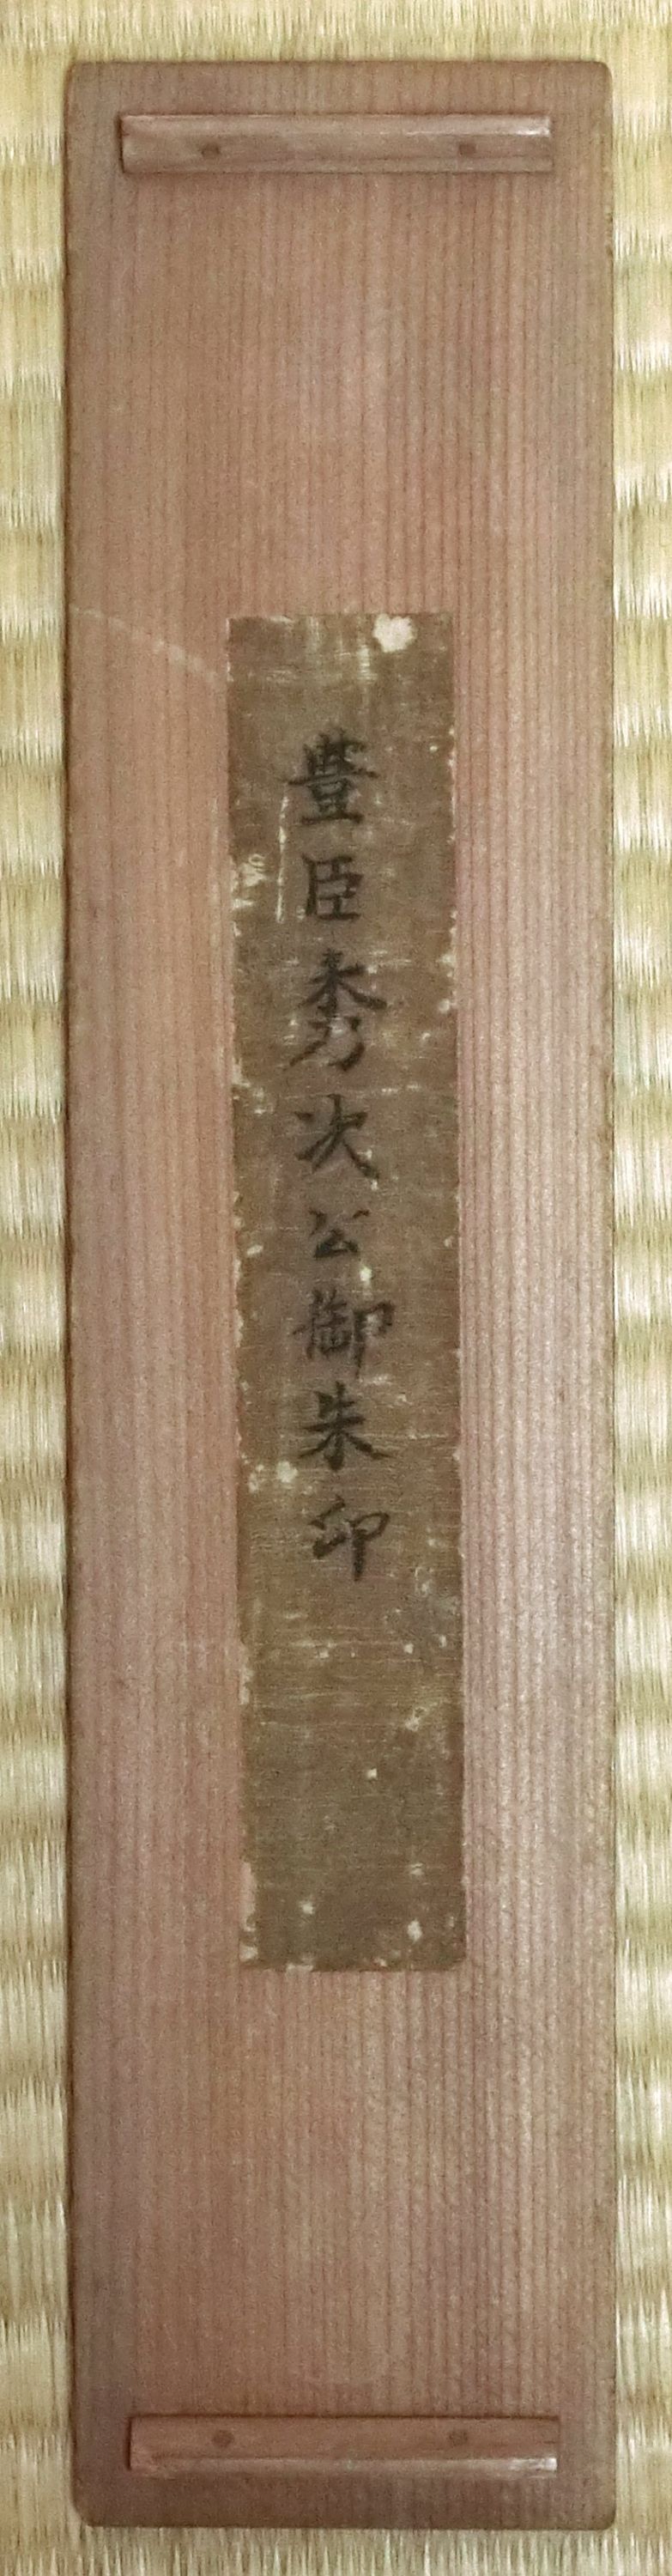 豊臣秀次公御朱印